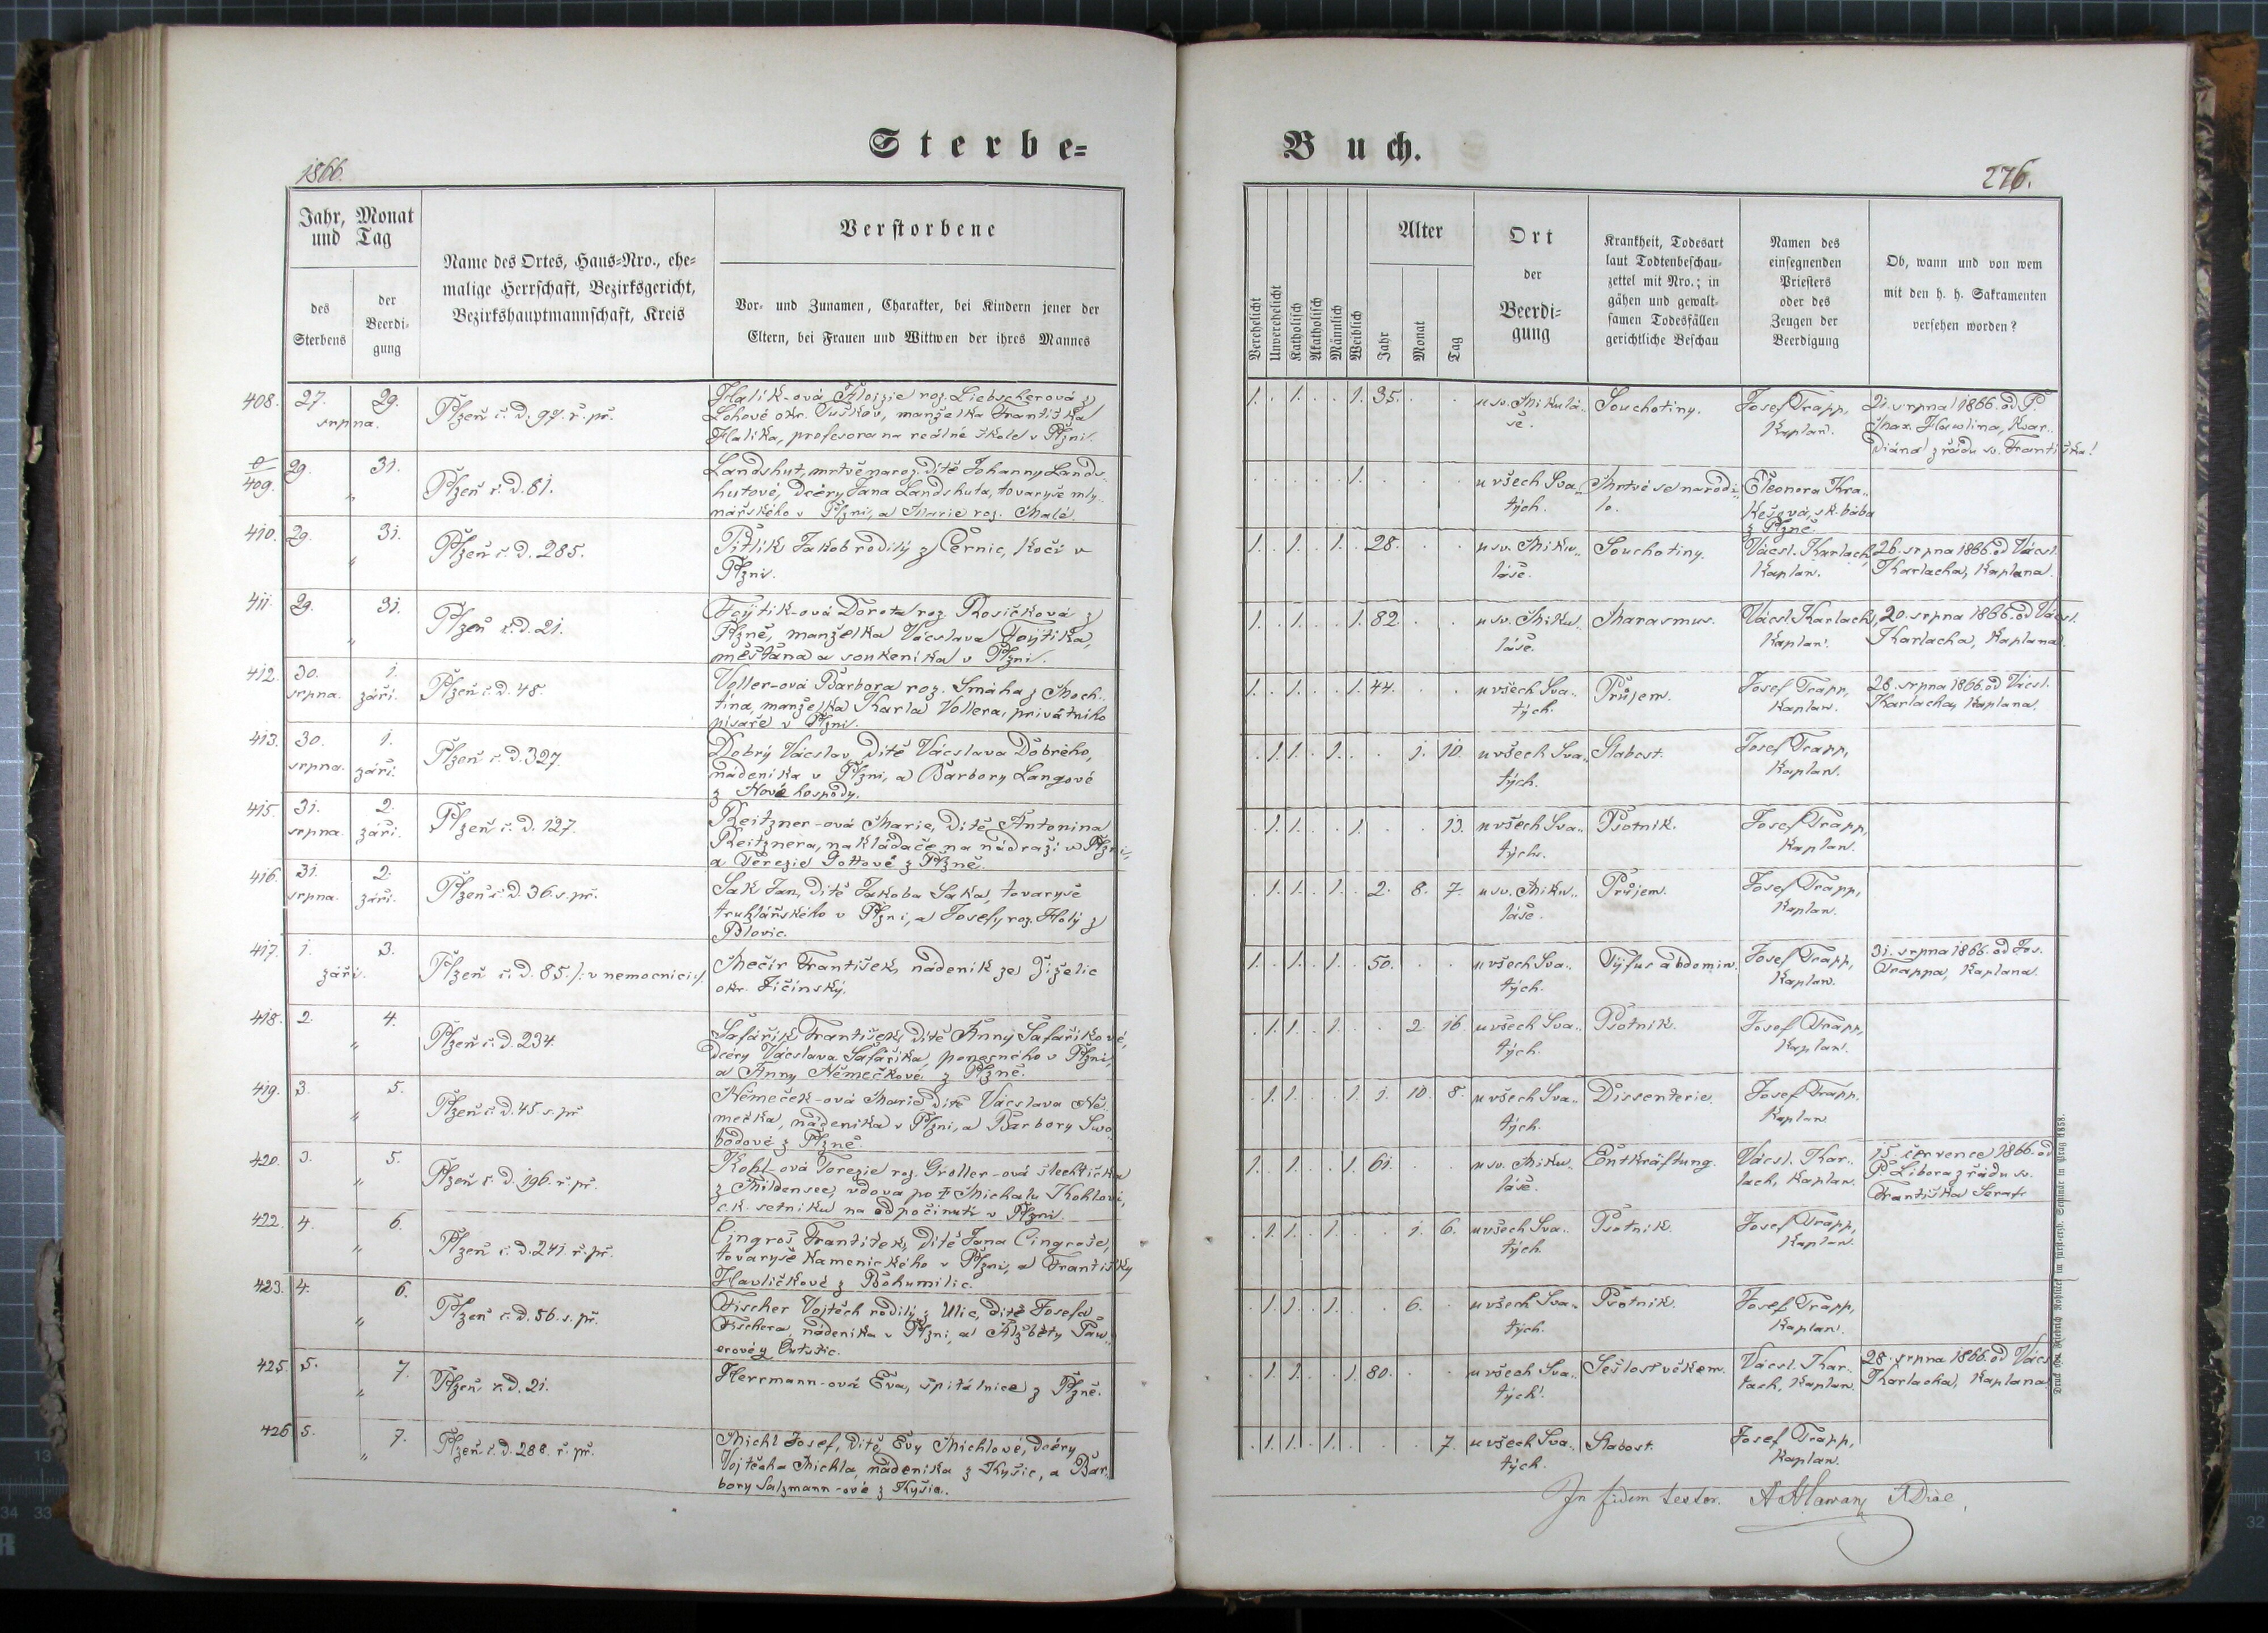 Sterbe-
1866.
Jahr, Monat
und Tag
des
Sterbens
der
Beerdi-
gung
Name des Ortes, Haus-Nro., ehe-
malige Herrschaft, Bezirksgericht,
Bezirkshauptmannschaft, Kreis
Verstorbene
Vor- und Zunamen, Charakter, bei Kindern jener der
Eltern, bei Frauen und Wittwen der ihres Mannes
408. 27. 29. srpna. Plzeň č. d. 97. ř. př.
Halik-ová Aloizie roz. Liebscherová z
Lohové okr. Tuškov, manželka Františka
Halika, profesora na reálné škole v Plzni.
409. 29. 31. „ Plzeň č. d. 81.
Landshut, mrtvě naroz. dítě Johanny Lands-
hutové, dcéry Jana Landshuta, tovaryše mly-
nářského v Plzni, a Marie roz. Malé.
410. 29. 31. „ Plzeň č. d. 285.
Pitlik Jakob rodilý z Černic, kočí v
Plzni.
411. 29. 31. „ Plzeň č. d. 21.
Fojtik-ová Dorota roz. Rosičková z
Plzně, manželka Vácslava Fojtika,
měšťana a soukenika v Plzni.
412. 30. srpna. 1. září. Plzeň č. d. 48.
Voller-ová Barbora roz. Smáha z Moch-
tína, manželka Karla Vollera, privátního
pisaře v Plzni.
413. 30. srpna. 1. září. Plzeň č. d. 327.
Dobrý Vácslav, dítě Vácslava Dobrého,
nádenika v Plzni, a Barbory Langové
z Nové hospody.
415. 31. srpna. 2. září. Plzeň č. d. 127.
Reitzner-ová Marie, dítě Antonina
Reitznera, nakládače na nádraží v Plzni,
a Terezie Gottové z Plzně.
416. 31. srpna. 2. září. Plzeň č. d. 36. s. př.
Sak Jan, dítě Jakoba Saka, tovaryše
truhlářského v Plzni, a Josefy roz. Holý z
Blovic.
417. 1. 3. září. Plzeň č. d. 85. /: v nemocnici :/
Mečir František, nádenik ze Žiželic
okr. Jičínský.
418. 2. 4. „ Plzeň č. d. 234.
Šafářik František, dítě Anny Šafařikové,
dcéry Vácslava Šafářika, ponosného v Plzni,
a Anny Němečkové z Plzně.
419. 3. 5. „ Plzeň č. d. 45. s. př.
Němeček-ová Marie dítě Vácslava Ně-
mečka, nádenika v Plzni, a Barbory Swo-
bodové z Plzně.
420. 3. 5. „ Plzeň č. d. 196. ř. př.
Kohl-ová Terezie roz. Gröller-ová šlechtička
z Mildensee, vdova po † Michalu Kohlovi,
c. k. setniku na odpočinutí v Plzni.
422. 4. 6. „ Plzeň č. d. 241. ř. př.
Cingroš František, dítě Jana Cingroše,
tovaryše kamenického v Plzni, a Františky
Havličkové z Bohumilic.
423. 4. 6. „ Plzeň č. d. 56. s. př.
Fischer Vojtěch rodilý z Ulic, dítě Josefa
Fischera, nádenika v Plzni, a Alžběty Pav-
erové z
425. 5. 7. „ Plzeň č. d. 21.
Herrmann-ová Eva, špitálnice z Plzně.
426 5. 7. „ Plzeň č. d. 288. ř. př.
Michl Josef, dítě Evy Michlové, dcéry
Vojtěcha Michla, nádenika z Kyšic, a Bar-
bory Salzmann-ové z Kyšic.
Buch.
276.
Verehelicht
Unverehelicht
Katholisch
Akatholisch
Männlich
Weiblich
Alter
Jahr
Monat
Tag
Ort
der
Beerdi-
gung
Krankheit, Todesart
laut Todtenbeschau-
zettel mit Nro.; in
gähen und gewalt-
samen Todesfällen
gerichtliche Beschau
Namen des
einsegnenden
Priesters
oder des
Zeugen der
Beerdigung
Ob, wann und von wem
mit den h. h. Sakramenten
versehen worden?
1. . 1. . . 1. 35. . . u sv. Mikulá- Souchotiny. Josef Trapp, 21. srpna 1866. od P.
še. Kaplan. Max. Hawlina, Kvar-
diána z řádu sv. Františka!
. . . . . 1. . . . u všech Sva- Mrtvé se narodi- Eleonora Kra-
tých. lo. kešová, sk. bába
z Plzně.
1. . 1. . 1. . 28. . . u sv. Miku- Souchotiny. Vácsl. Karlach, 26. srpna 1866. od Vácsl.
láše. Kaplan. Karlacha, Kaplana.
1. . 1. . . 1. 82. . . u sv. Miku- Marasmus. Vácsl. Karlach, 20. srpna 1866. od Vácsl.
láše. Kaplan. Karlacha, Kaplana.
1. . 1. . . 1. 44. . . u všech Sva- Průjem. Josef Trapp, 28. srpna 1866. od Vácsl.
tých. Kaplan. Karlacha, Kaplana.
. 1. 1. . 1. . . 1. 10. u všech Sva- Slabost. Josef Trapp,
tých. Kaplan.
. 1. 1. . . 1. . . 13. u všech Sva- Psotnik. Josef Trapp,
tých. Kaplan.
. 1. 1. . 1. . 2. 8. 7. u sv. Miku- Průjem. Josef Trapp,
láše. Kaplan.
1. . 1. . 1. . 50. . . u všech Sva- Tyfus abdomin. Josef Trapp, 31. srpna 1866. od Jos.
tých. Kaplan. Trappa, Kaplana.
. 1. 1. . 1. . . 2. 16. u všech Sva- Psotnik. Josef Trapp,
tých. Kaplan.
. 1. 1. . . 1. 1. 10. 8. u všech Sva- Dissenterie. Josef Trapp.
tých. Kaplan
1. . 1. . . 1. 61. . . u sv. Miku- Entkräftung. Vácsl. Kar- 15. července 1866. od
láše. lach, Kaplan. P. Libora z řádu sv.
Františka Seraf.
. 1. 1. . 1. . . 1. 6. u všech Sva- Psotnik. Josef Trapp,
tých. Kaplan.
. 1. 1. . 1. . . 6. . u všech Sva- Psotnik. Josef Trapp,
tých. Kaplan.
. 1. 1. . . 1. 80. . . u všech Sva- Sešlost věkem. Vácsl. Kar- 28. srpna 1866. od Vácsl.
tých. lach, Kaplan. Karlacha, Kaplana.
. 1. 1. . 1. . . . 7. u všech Sva- Slabost. Josef Trapp,
tých. Kaplan.
In fidem testor.